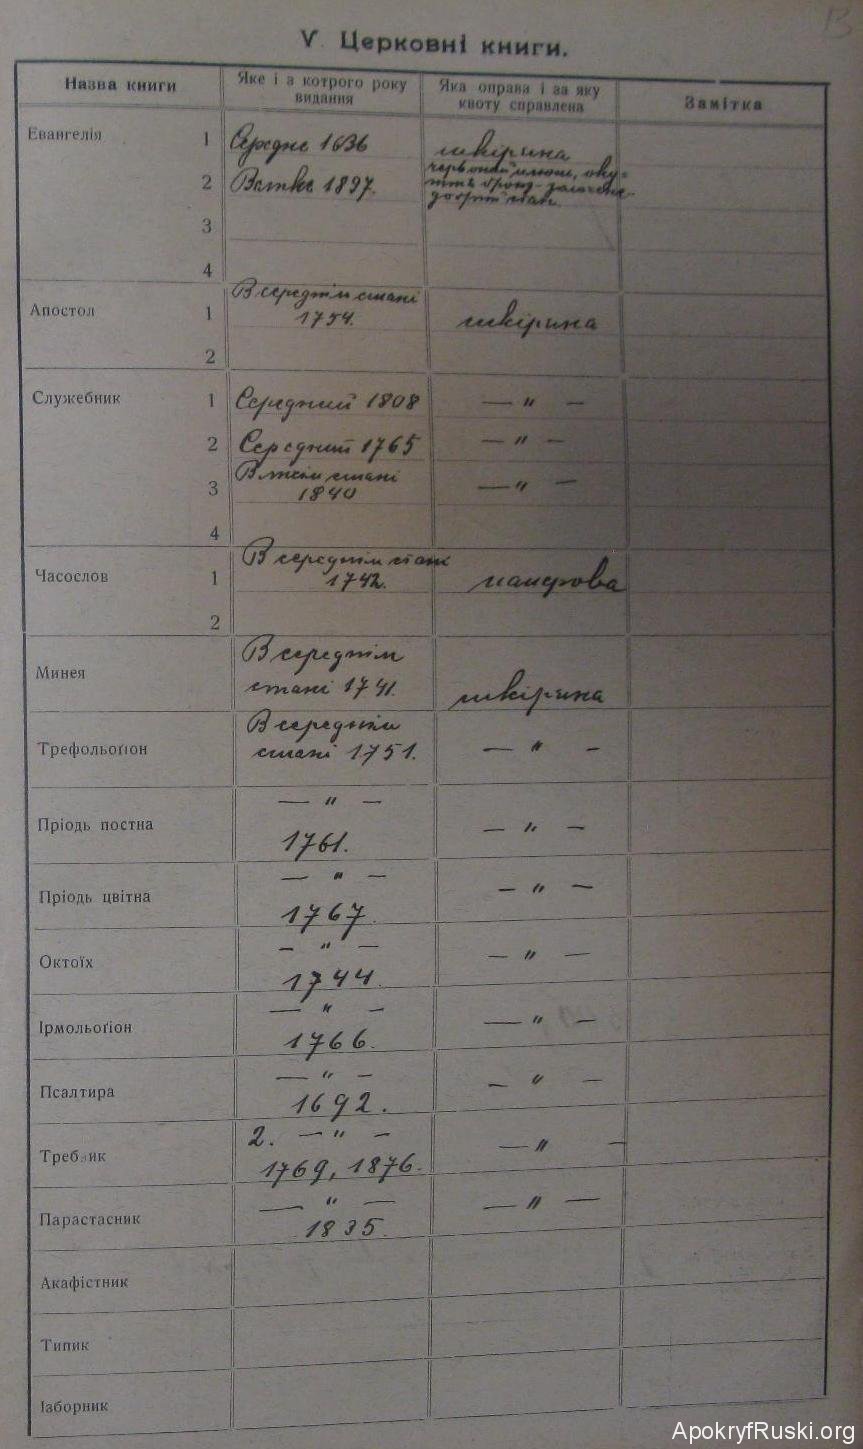 V. Церковні книги.
Назва книги
Яке і з котрого року видання
Яка оправа і за яку квоту справлена
Замітка
Евангелія 1 Середнє 1636 шкіряна
2 1897. червоний плюш,
добрий стан
3
4
Апостол 1 В середнім стані 1754. шкіряна
2
Служебник 1 Середний 1808 — " —
2 Середний 1765 — " —
3 стані 1840 — " —
4
Часослов 1 В середнім стані 1742. паперова
2
Минея В середнім стані 1741. шкіряна
Трефольоґіон В середнім стані 1751. — " —
Пріодь постна — " — 1761. — " —
Пріодь цвітна — " — 1767. — " —
Октоїх — " — 1744. — " —
Ірмольоґіон — " — 1766. — " —
Псалтира — " — 1692. — " —
Требник 2. — " — 1769, 1876. — " —
Парастасник — " — 1835. — " —
Акафістник
Типик
Ізборник
ApokryfRuski.org